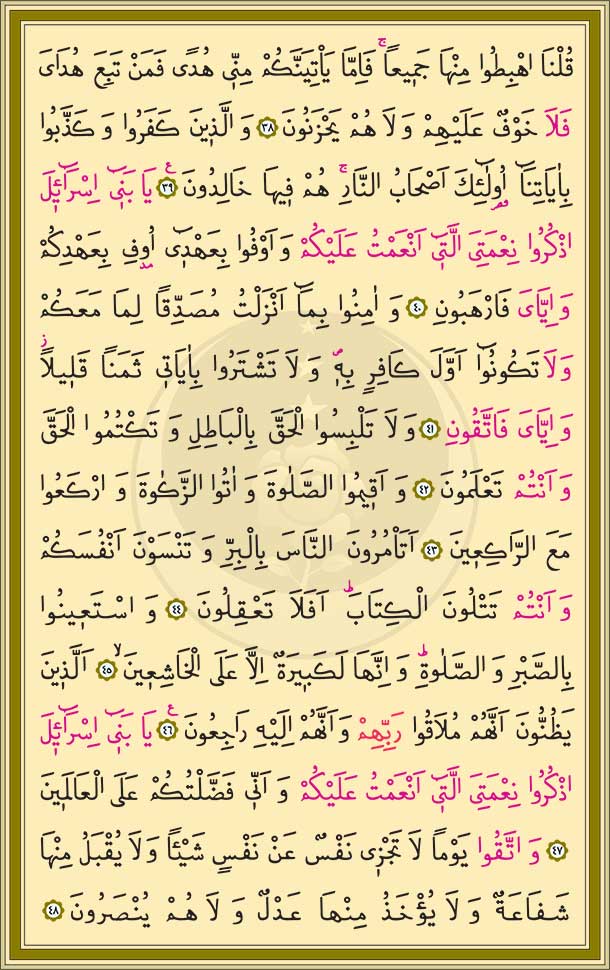 قُلْنَا اهْبِطُوا مِنْهَا جَمٖيعاًۚ فَاِمَّا يَأْتِيَنَّكُمْ مِنّٖى هُدًى فَمَنْ تَبِعَ هُدَاىَ
فَلَا خَوْفٌ عَلَيْهِمْ وَلَا هُمْ يَحْزَنُونَ ﴿٣٨﴾ وَالَّذٖينَ كَفَرُوا وَكَذَّبُوا
بِاٰيَاتِنَٓا اُو۬لٰٓئِكَ اَصْحَابُ النَّارِۚ هُمْ فٖيهَا خَالِدُونَ ﴿٣٩﴾ ع يَا بَنٖٓى اِسْرَٓائٖلَ
اذْكُرُوا نِعْمَتِىَ الَّتٖٓى اَنْعَمْتُ عَلَيْكُمْ وَاَوْفُوا بِعَهْدٖٓى اُو۫فِ بِعَهْدِكُمْ
وَاِيَّاىَ فَارْهَبُونِ ﴿٤٠﴾ وَاٰمِنُوا بِمَٓا اَنْزَلْتُ مُصَدِّقًا لِمَا مَعَكُمْ
وَلَا تَكُونُٓوا اَوَّلَ كَافِرٍ بِهٖۖ وَلَا تَشْتَرُوا بِاٰيَاتٖى ثَمَنًا قَلٖيلاًؗ
وَاِيَّاىَ فَاتَّقُونِ ﴿٤١﴾ وَلَا تَلْبِسُوا الْحَقَّ بِالْبَاطِلِ وَتَكْتُمُوا الْحَقَّ
وَاَنْتُمْ تَعْلَمُونَ ﴿٤٢﴾ وَاَقٖيمُوا الصَّلٰوةَ وَاٰتُوا الزَّكٰوةَ وَارْكَعُوا
مَعَ الرَّاكِعٖينَ ﴿٤٣﴾ اَتَأْمُرُونَ النَّاسَ بِالْبِرِّ وَتَنْسَوْنَ اَنْفُسَكُمْ
وَاَنْتُمْ تَتْلُونَ الْكِتَابَؕ اَفَلَا تَعْقِلُونَ ﴿٤٤﴾ وَاسْتَعٖينُوا
بِالصَّبْرِ وَالصَّلٰوةِؕ وَاِنَّهَا لَكَبٖيرَةٌ اِلَّا عَلَى الْخَاشِعٖينَۙ ﴿٤٥﴾ اَلَّذٖينَ
يَظُنُّونَ اَنَّهُمْ مُلَاقُوا رَبِّهِمْ وَاَنَّهُمْ اِلَيْهِ رَاجِعُونَ ﴿٤٦﴾ ع يَا بَنٖٓى اِسْرَٓائٖلَ
اذْكُرُوا نِعْمَتِىَ الَّتٖٓى اَنْعَمْتُ عَلَيْكُمْ وَاَنّٖى فَضَّلْتُكُمْ عَلَى الْعَالَمٖينَ
﴿٤٧﴾ وَاتَّقُوا يَوْماً لَا تَجْزٖى نَفْسٌ عَنْ نَفْسٍ شَيْئاً وَلَا يُقْبَلُ مِنْهَا
شَفَاعَةٌ وَلَا يُؤْخَذُ مِنْهَا عَدْلٌ وَلَا هُمْ يُنْصَرُونَ ﴿٤٨﴾